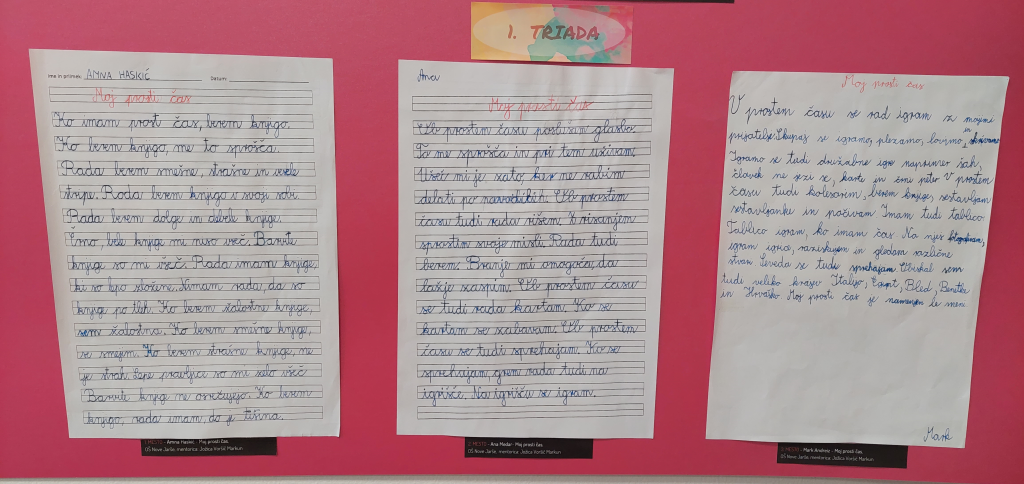 1. TRIADA
Ime in priimek: AMNA HASKIĆ Datum:
Moj prosti čas
Ko imam prost čas, berem knjigo.
Ko berem knjigo, me to sprošča.
Rada berem smešne, strašne in vesele
stripe. Rada berem knjige v svoji sobi.
Rada berem dolge in debele knjige.
Črno, bele knjige mi niso všeč. Barvite
knjige so mi všeč. Rada imam knjige,
ki so lepo zložene. Nimam rada, da so
knjige po tleh. Ko berem žalostne knjige,
sem žalostna. Ko berem smešne knjige,
se smejem. Ko berem strašne knjige, me
je strah. Lepe pravljice so mi zelo všeč
Barvite knjig me osrečujejo. Ko berem
knjigo, rada imam, da je tišina.
1. MESTO - Amna Haskić - Moj prosti čas,
OŠ Nove Jarše, mentorica: Jožica Voršič Markun
Ana
Moj prosti čas
Ob prostem času poslušam glasbo.
To me sprošča in pri tem uživam.
Všeč mi je zato, ker ne rabim
delati po navodilih. Ob prostem
času tudi rada rišem. Z risanjem
sprostim svoje misli. Rada tudi
berem. Branje mi omogoča, da
lažje zaspim. Ob prostem času
se tudi rada kartam. Ko se
kartam se zabavam. Ob prostem
času se tudi sprehajam. Ko se
sprehajam, grem rada tudi na
igrišče. Na igrišču se igram.
2. MESTO - Ana Medar - Moj prosti čas,
OŠ Nove Jarše, mentorica: Jožica Voršič Markun
Moj prosti čas
V prostem času se rad igram z mojimi
prijatelji. Skupaj se igramo, plezamo, lovimo, in
Igramo se tudi družabne igre naprimer šah,
človek ne jezi se, karte in črni peter V prostem
času tudi kolesarim, berem knjige, sestavljam
sestavljanke in počivam Imam tudi tablico
Tablico igram, ko imam čas Na njej fotografiram,
igram igrice, raziskujem in gledam različne
stvari Seveda se tudi sprehajam Obiskal sem
tudi veliko krajev Italijo, Egipt, Bled, Benetke
in Hrvaško Moj prosti čas je namenjen le meni
Mark
3. MESTO - Mark Andreic - Moj prosti čas,
OŠ Nove Jarše, mentorica: Jožica Voršič Markun